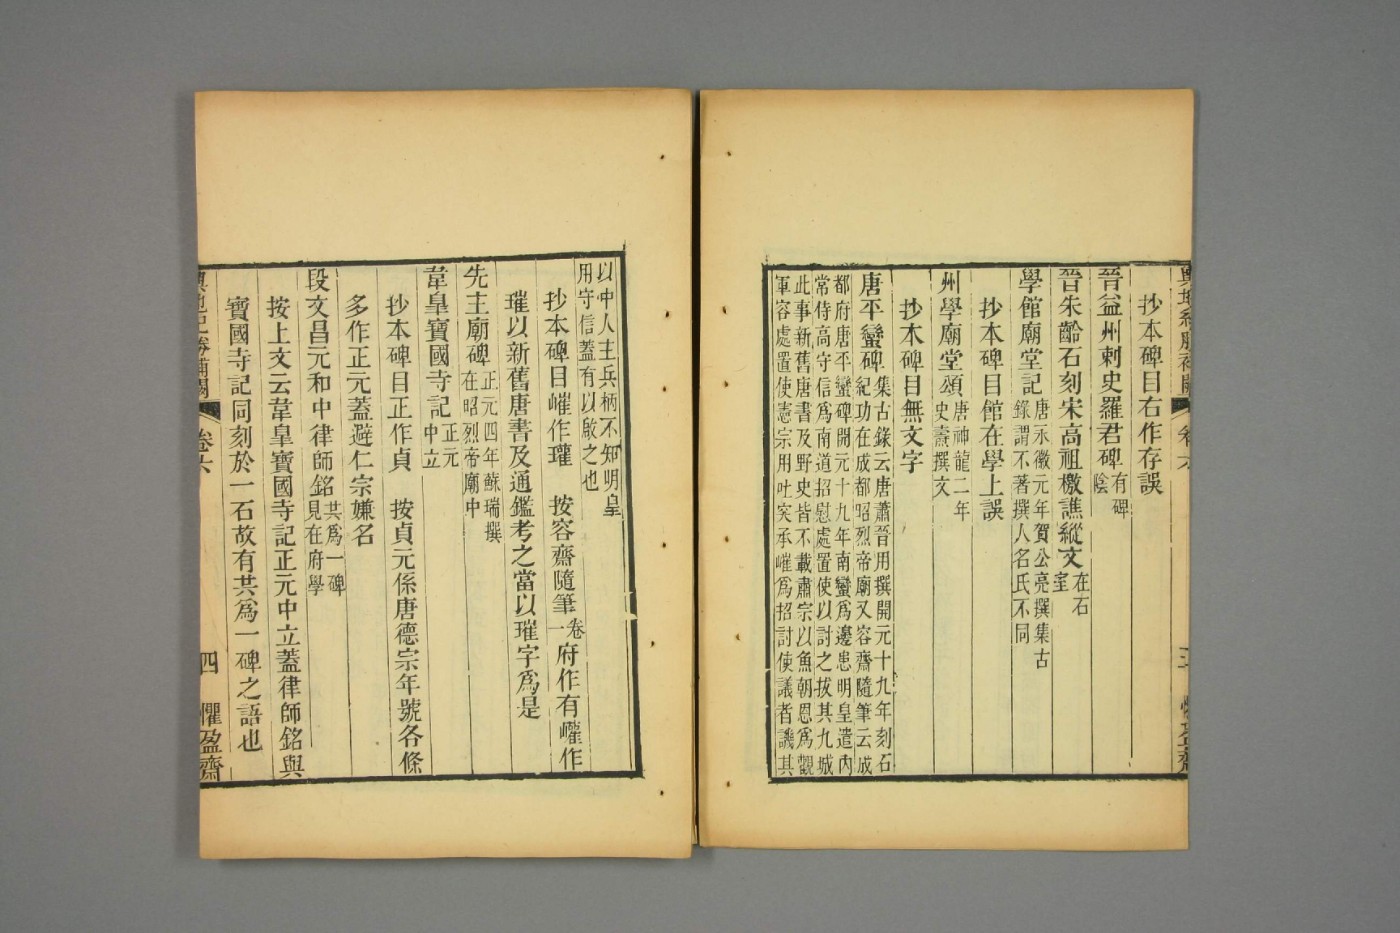 抄本碑目右作存誤
晉益州刺史羅君碑有碑
陰
晉朱齡石刻宋高祖檄譙縱文在石
室
學館廟堂記唐永徽元年賀公亮撰集古
錄謂不著撰人名氏不同
抄本碑目館在學上誤
州學廟堂頌唐神龍二年
史燾撰文
抄本碑目無文字
唐平蠻碑集古錄云唐蕭晉用撰開元十九年刻石
紀功在成都昭烈帝廟又容齋隨筆云成
都府唐平蠻碑開元十九年南蠻爲邊患明皇遣內
常侍高守信爲南道招慰處置使以討之拔其九城
此事新舊唐書及野史皆不載肅宗以魚朝恩爲觀
軍容處置使憲宗用吐突承嶊爲招討使議者譏其
以中人主兵柄不知明皇
用守信蓋有以啟之也
抄本碑目嶊作瓘　按容齋隨筆卷
一府作有巏作
璀以新舊唐書及通鑑考之當以璀字爲是
先主廟碑正元四年蘇瑞撰
在昭烈帝廟中
韋皐寶國寺記正元
中立
抄本碑目正作貞　按貞元係唐德宗年號各條
多作正元蓋避仁宗嫌名
段文昌元和中律師銘共爲一碑
見在府學
按上文云韋皐寶國寺記正元中立蓋律師銘與
寶國寺記同刻於一石故有共爲一碑之語也
輿地紀勝補闕　卷六　四　懼盈齋